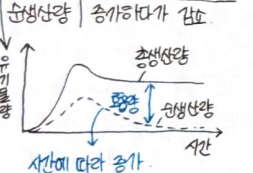 순생산량 | 증가하다가 감소.
유기물량
총생산량
호흡량
순생산량
시간
시간에 따라 증가.